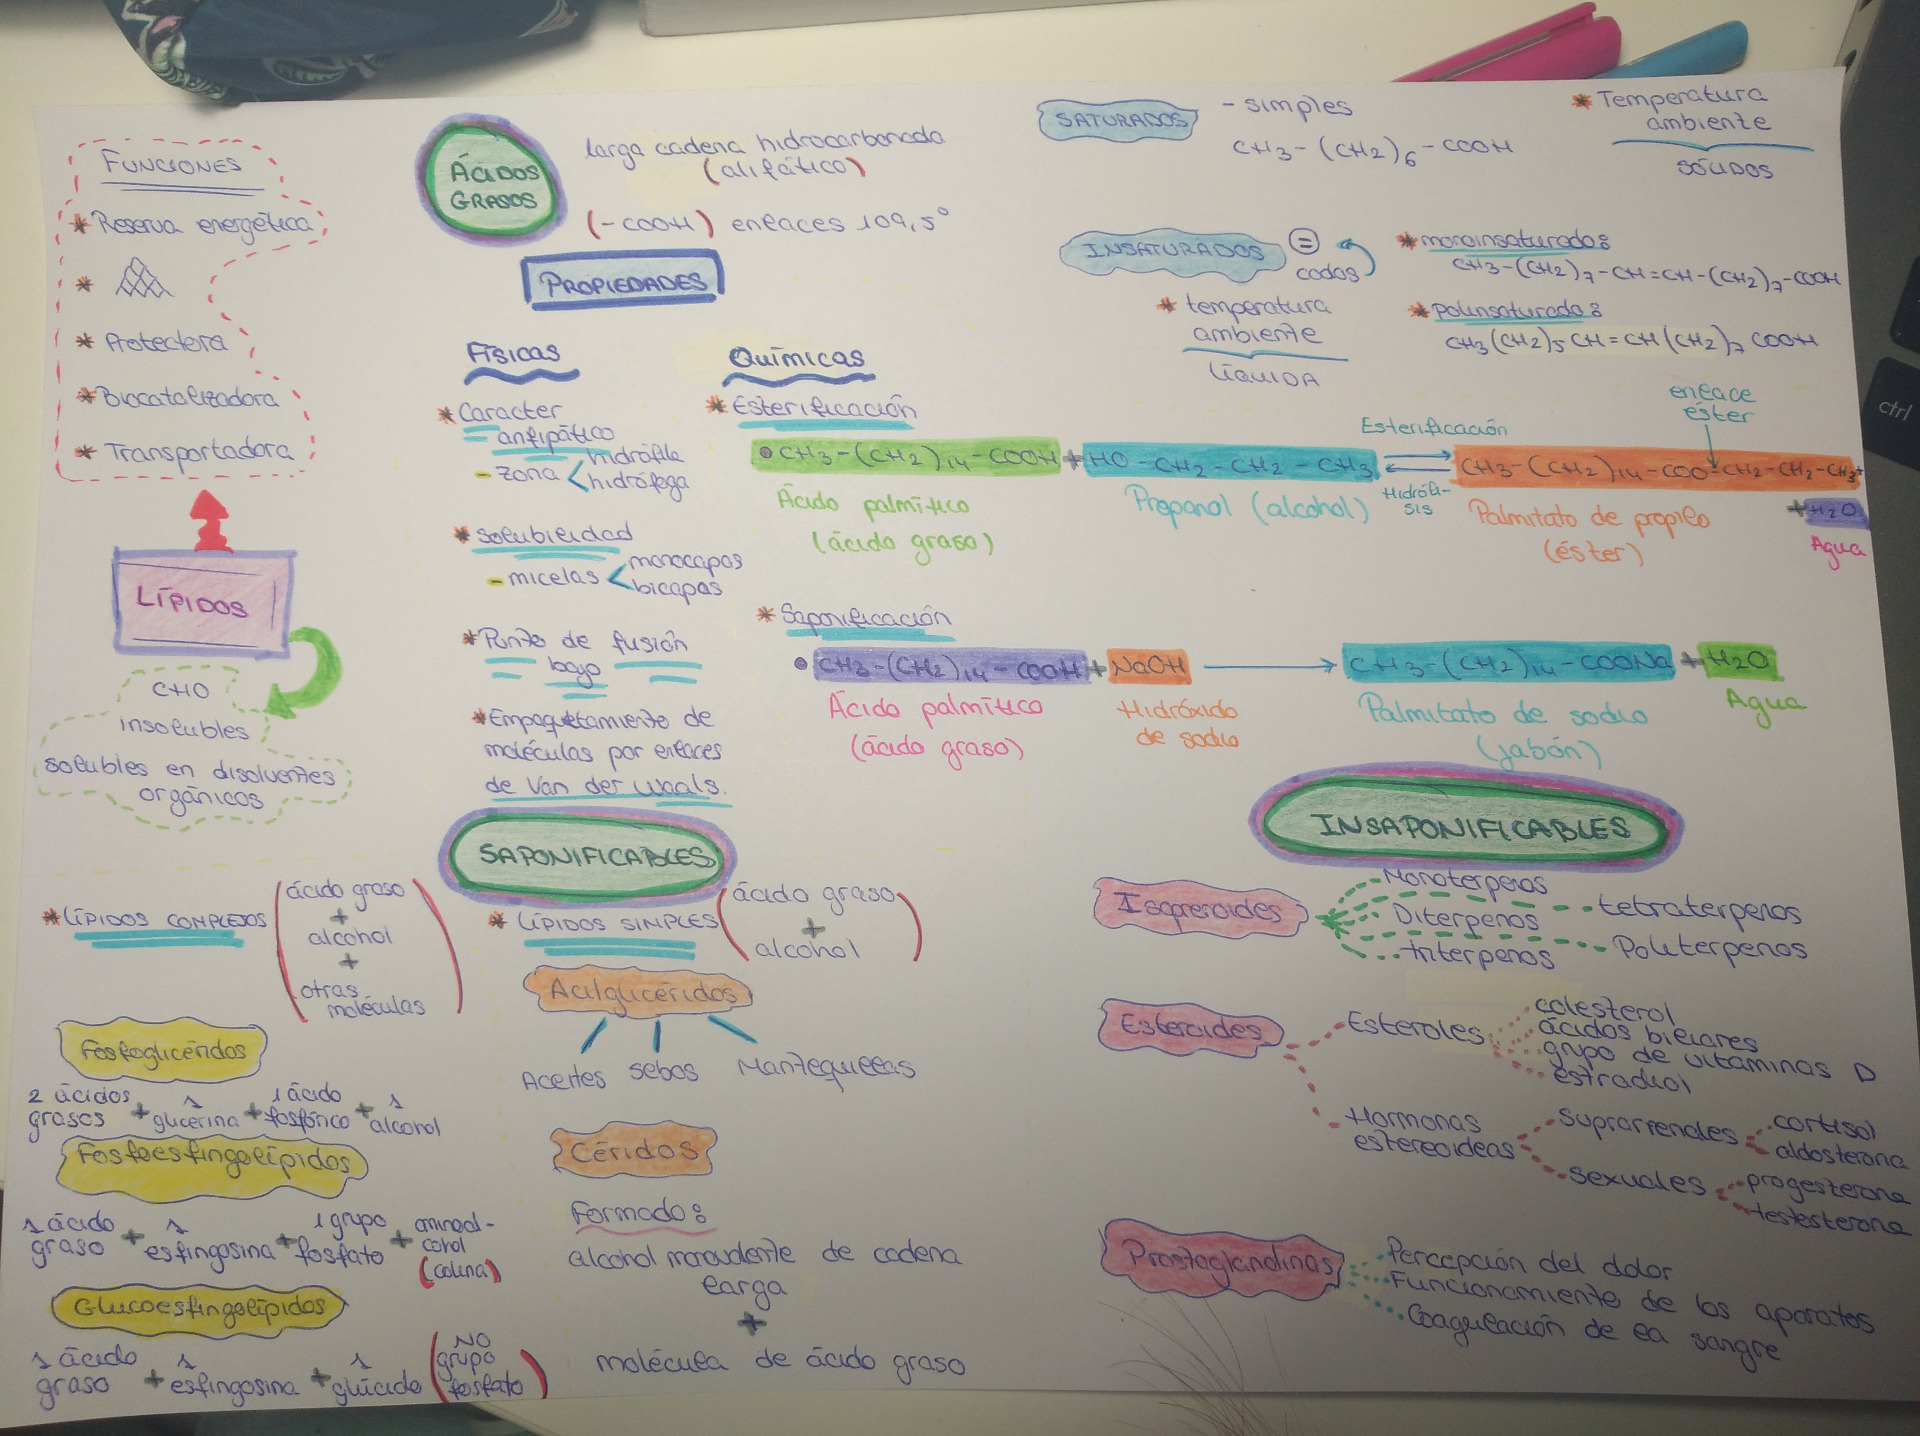 FUNCIONES
* Reserva energética
*
* Protectora
* Biocatalizadora
* Transportadora
LÍPIDOS
CHO
insolubles
solubles en disolventes
orgánicos
ÁCIDOS
GRASOS
larga cadena hidrocarbonada
(alifático)
(-COOH) enlaces 109,5°
SATURADOS
- simples
CH3-(CH2)6-COOH
* Temperatura
ambiente
SÓLIDOS
INSATURADOS
=
codos
* temperatura
ambiente
LÍQUIDA
* monoinsaturado:
CH3-(CH2)7-CH=CH-(CH2)7-COOH
* poliinsaturado:
CH3(CH2)5CH=CH(CH2)7COOH
PROPIEDADES
FÍSICAS
* Caracter
anfipático
- zona < hidrófila
hidrófoga
* Solubilidad
- micelas < monocapas
bicapas
* Punto de fusión
bajo
* Empaquetamiento de
moléculas por enlaces
de Van der Waals.
QUÍMICAS
* Esterificación
• CH3-(CH2)14-COOH + HO-CH2-CH2-CH3
Esterificación
Hidróli-
sis
enlace
éster
CH3-(CH2)14-COO-CH2-CH2-CH3+
+ H2O
Ácido palmítico
(ácido graso)
Propanol (alcohol)
Palmitato de propilo
(éster)
Agua
* Saponificación
• CH3-(CH2)14-COOH + NaOH → CH3-(CH2)14-COONa + H2O
Ácido palmítico
(ácido graso)
Hidróxido
de sodio
Palmitato de sodio
(jabón)
Agua
SAPONIFICABLES
* LÍPIDOS COMPLEJOS
(ácido graso
+
alcohol
+
otras
moléculas)
Fosfoglicéridos
2 ácidos grasos + 1 glicerina + 1 ácido fosfórico + 1 alcohol
Fosfoesfingolípidos
1 ácido graso + 1 esfingosina + 1 grupo fosfato + aminoal-
cohol
(colina)
Glucoesfingolípidos
1 ácido graso + 1 esfingosina + 1 glúcido (NO
grupo
fosfato)
* LÍPIDOS SIMPLES
(ácido graso
+
alcohol)
Acilglicéridos
Aceites sebos Mantequillas
Céridos
Formado:
alcohol monovalente de cadena
larga
+
molécula de ácido graso
INSAPONIFICABLES
Isoprenoides
Monoterpenos
Diterpenos
triterpenos
tetraterpenos
Politerpenos
Esteroides
Esteroles
colesterol
ácidos biliares
grupo de vitaminas D
estradiol
Hormonas
estereoideas
Suprarrenales
cortisol
aldosterona
sexuales
progesterona
testosterona
Prostaglandinas
Percepción del dolor
Funcionamiento de los aparatos
Coagulación de la sangre
ctrl